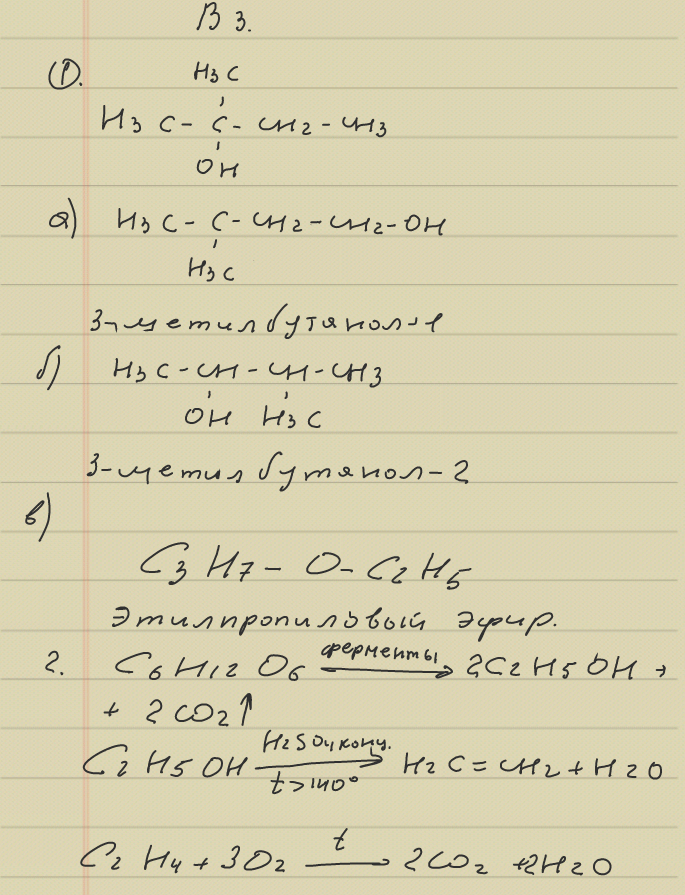 В 3.
①.
H3C
H3C - C - CH2 - CH3
OH
а) H3C - C - CH2 - CH2 - OH
H3C
3-метилбутанол-1
б) H3C - CH - CH - CH3
OH H3C
3-метилбутанол-2
в)
C3H7 - O - C2H5
Этилпропиловый эфир.
2. C6H12O6 ферменты→ 2C2H5OH +
+ 2CO2↑
C2H5OH H2SO4 конц.→ t>140° H2C=CH2 + H2O
C2H4 + 3O2 t→ 2CO2 + 2H2O